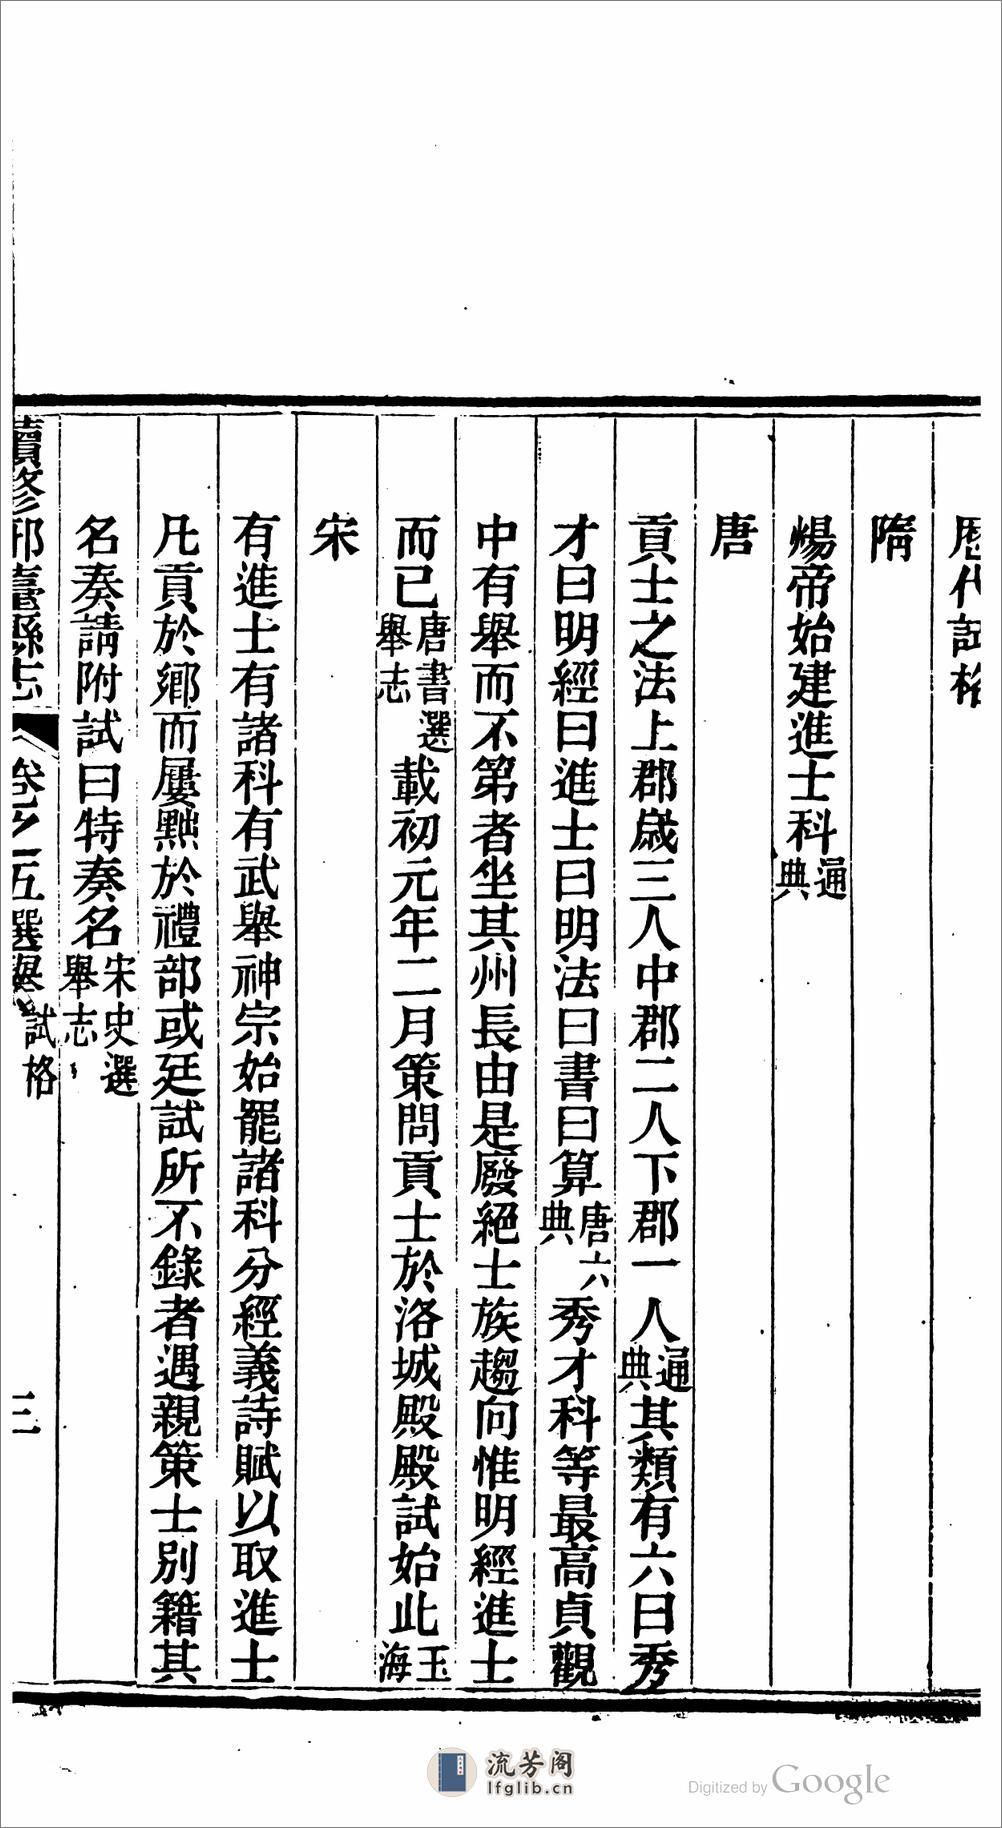 歷代試格
隋
煬帝始建進士科通典
唐
貢士之法上郡歲三人中郡二人下郡一人通典其類有六曰秀
才曰明經曰進士曰明法曰書曰算唐六典秀才科等最高貞觀
中有舉而不第者坐其州長由是廢絕士族趨向惟明經進士
而已唐書選舉志載初元年二月策問貢士於洛城殿殿試始此玉海
宋
有進士有諸科有武舉神宗始罷諸科分經義詩賦以取進士
凡貢於鄉而屢黜於禮部或廷試所不錄者遇親策士別籍其
名奏請附試曰特奏名宋史選舉志
續修邢臺縣志 卷之五選舉 試格 三
流芳阁
lfglib.cn
Digitized by Google